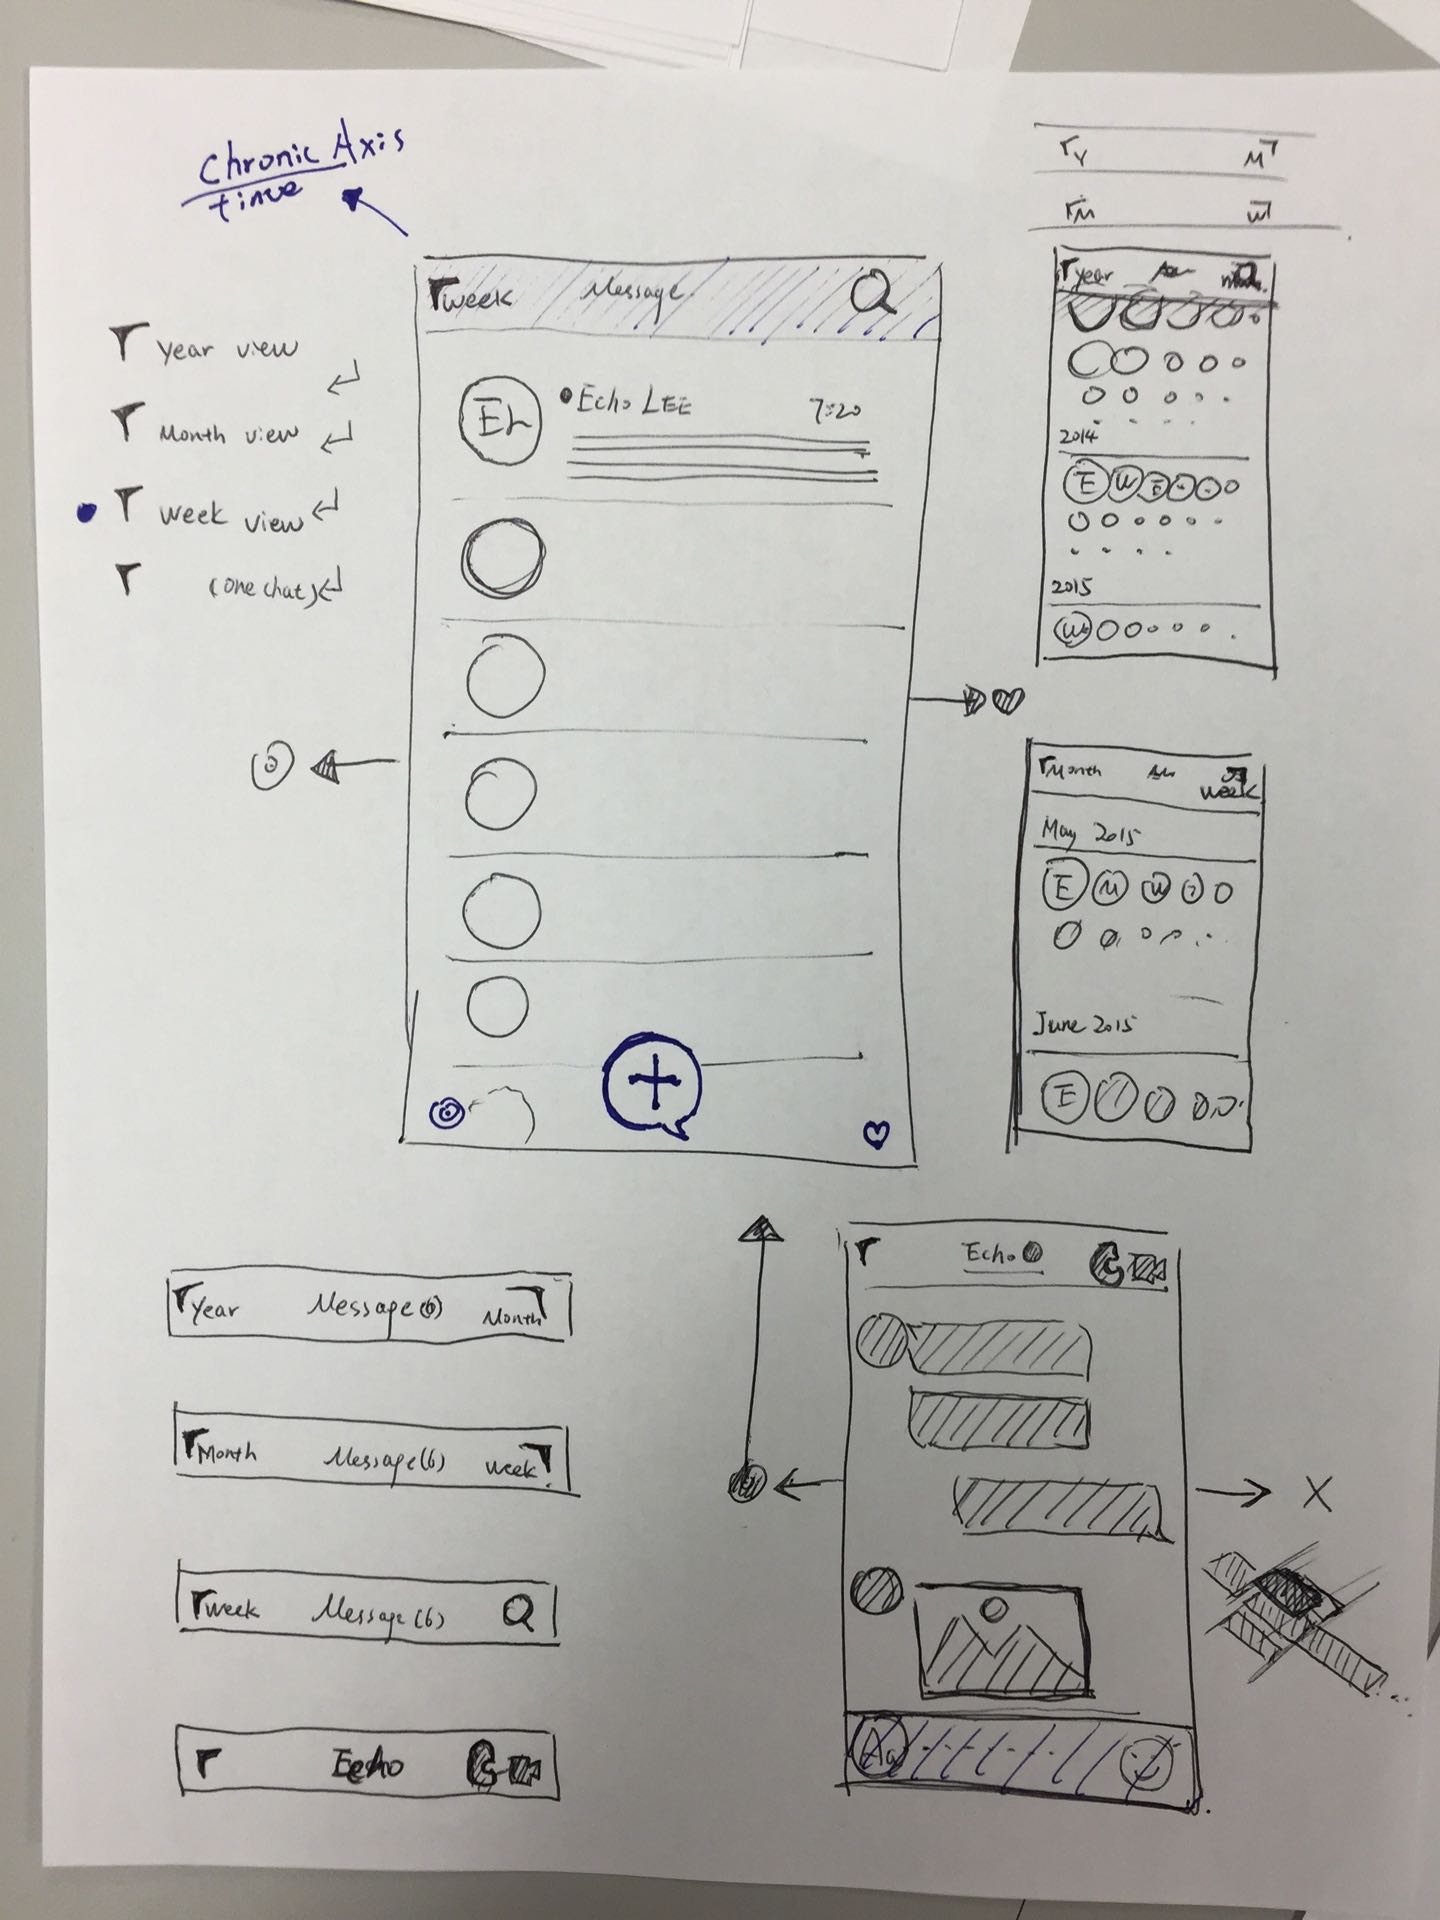 Chronic Axis
time
Year view
Month view
Week view
(one chat)
Week Message
EL Echo LEE 7:20
Y M
M W
year
2014
E W E
2015
W
Month
Week
May 2015
E M W
June 2015
E
Year Message(6) Month
Month Message(6) Week
Week Message(6)
Echo
Echo
X
Aa